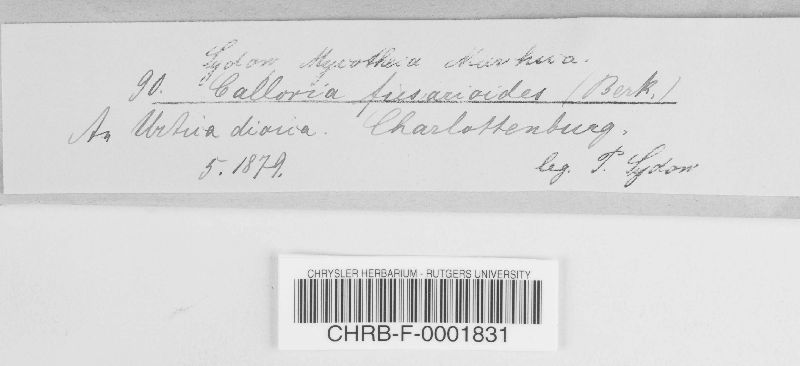 Sydow Mycotheca Marchica.
90. Calloria fusarioides (Berk.)
An Urtica dioica. Charlottenburg.
5. 1879. leg. P. Sydow
CHRYSLER HERBARIUM - RUTGERS UNIVERSITY
CHRB-F-0001831